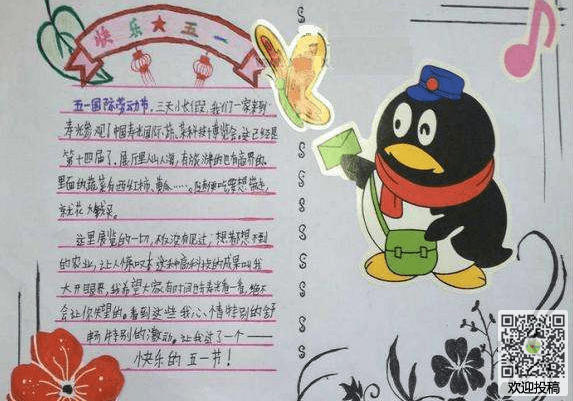 快乐★五一
五一国际劳动节,三天小长假,我们一家来到
寿光参观了中国寿光国际蔬菜科技博览会。这已经是
第十四届了。展厅里人山人海,有
里面的蔬菜有西红柿、黄瓜……。
就花大钱买。
这里展览的一切,我没有见过,想都想不到
的农业,让人惊叹!这种高科技的成果叫我
大开眼界,我希望大家有时间时去寿光看一看,绝不
会让你失望的。看到这些我心情特别的舒
畅,特别的激动。让我过了一个——
快乐的五一节!
欢迎投稿